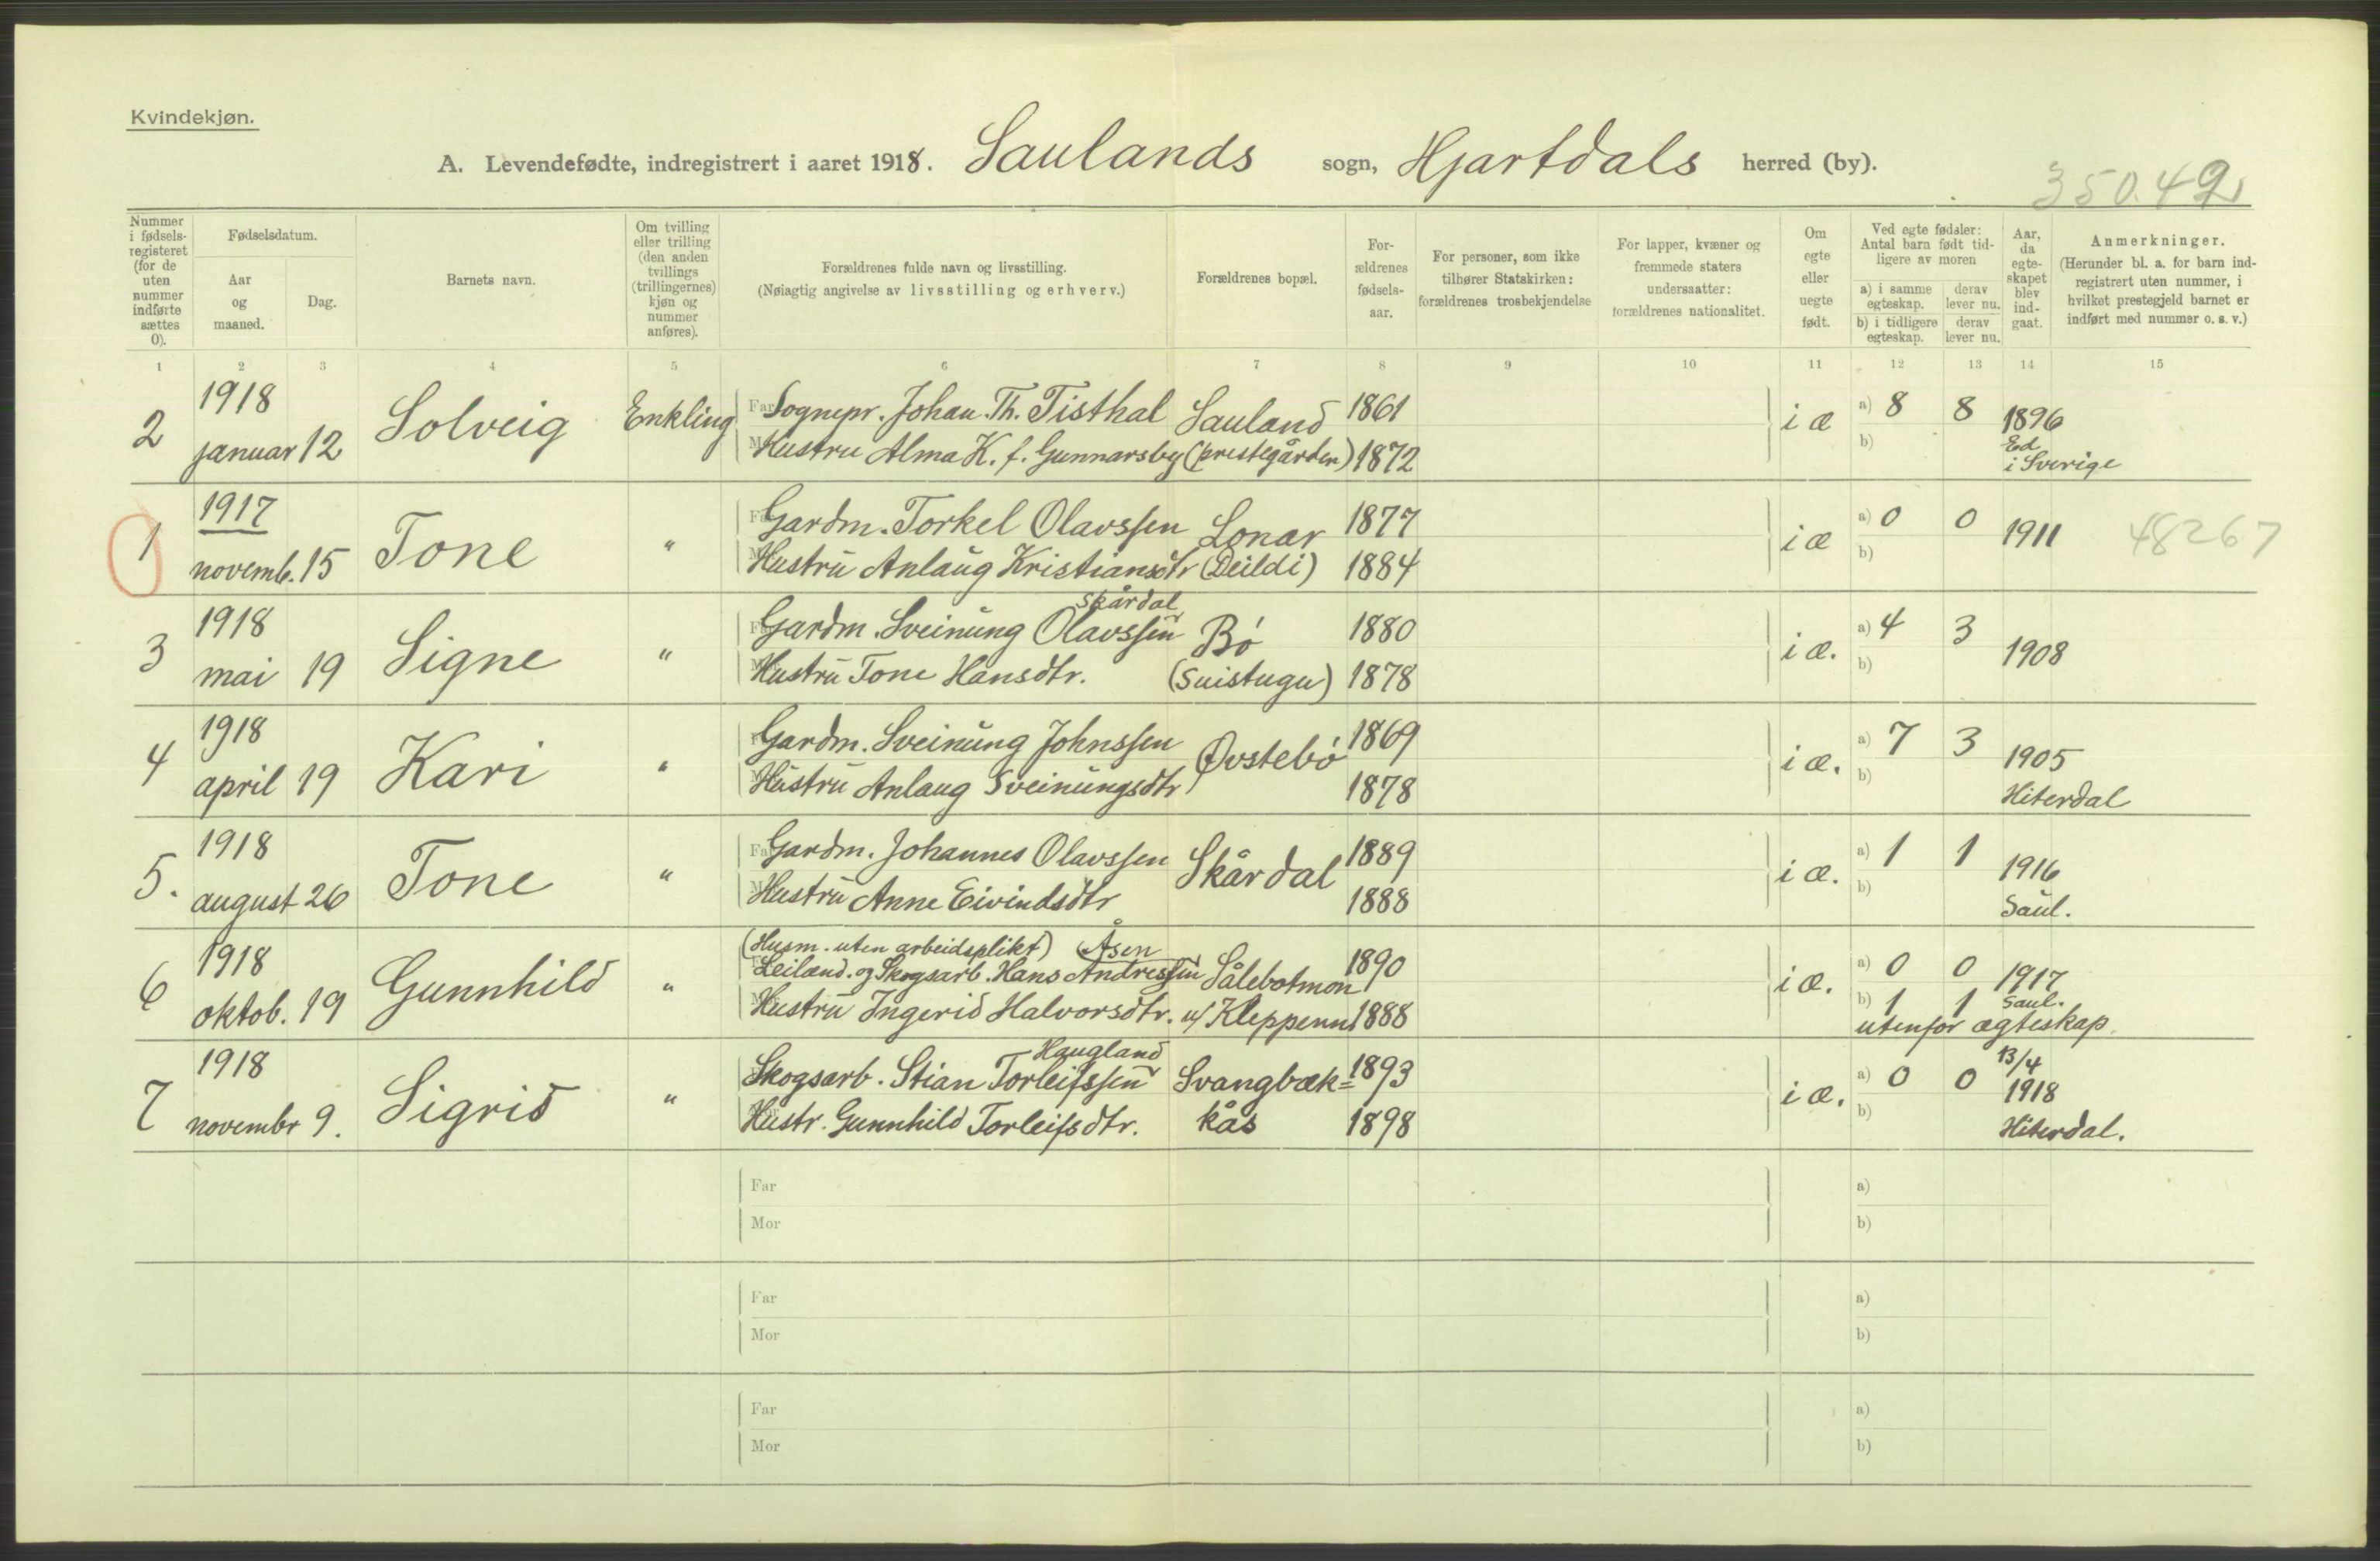 Kvindekjøn.
A. Levendefødte, indregistrert i aaret 1918. Saulands sogn, Hjartdals herred (by).
350.49
Nummer i fødsels-registeret (for de uten nummer indførte sættes 0).
Fødselsdatum.
Aar og maaned.
Dag.
Barnets navn.
Om tvilling eller trilling (den anden tvillings (trillingernes) kjøn og nummer anføres).
Forældrenes fulde navn og livsstilling.
(Nøiagtig angivelse av livsstilling og erhverv.)
Forældrenes bopæl.
For-ældrenes fødsels-aar.
For personer, som ikke tilhører Statskirken: forældrenes trosbekjendelse
For lapper, kvæner og fremmede staters undersaatter: forældrenes nationalitet.
Om egte eller uegte født.
Ved egte fødsler: Antal barn født tid-ligere av moren
a) i samme egteskap. derav lever nu.
b) i tidligere egteskap. derav lever nu.
Aar, da egte-skapet blev ind-gaat.
Anmerkninger.
(Herunder bl. a. for barn ind-registrert uten nummer, i hvilket prestegjeld barnet er indført med nummer o. s. v.)
1 2 3 4 5 6 7 8 9 10 11 12 13 14 15
2 1918 januar 12 Solveig Enkling
Far Sognepr. Johan. Th. Tisthal Sauland 1861 i æ a) 8 8 1896
Mor Hustru Alma K. f. Gunnarsby (prestegården) 1872 b) Ed i Sverige
1 1917 novemb. 15 Tone "
Gardm. Torkel Olavssen Lonar 1877 i æ a) 0 0 1911 48267
Hustru Anlaug Kristiansdtr (Deildi) 1884 b)
3 1918 mai 19 Signe "
Skårdal
Gardm. Sveinung Olavssen Bø 1880 i æ. a) 4 3 1908
Hustru Tone Hansdtr. (Suistugu) 1878 b)
4 1918 april 19 Kari "
Gardm. Sveinung Johnssen Øvstebø 1869 i æ. a) 7 3 1905
Hustru Anlaug Sveinungsdtr 1878 b) Hiterdal
5. 1918 august 26 Tone "
Far Gardm. Johannes Olavssen Skårdal 1889 i æ. a) 1 1 1916
Hustru Anne Eivindsdtr 1888 b) Saul.
6 1918 oktob. 19 Gunnhild "
(Husm. uten arbeidsplikt) Åsen
Leilænd. og Skogsarb. Hans Andressen Sålebotmon 1890 i æ. a) 0 0 1917
Hustru Ingerid Halvorsdtr. u/ Kleppenn 1888 b) 1 1 Saul.
utenfor ægteskap.
7 1918 novembr 9. Sigrid "
Haugland 13/4
Skogsarb. Stian Torleifssen Svangbæk= 1893 i æ. a) 0 0 1918
Hustr. Gunnhild Torleifsdtr. kås 1898 b) Hiterdal.
Far a)
Mor b)
Far a)
Mor b)
Far a)
Mor b)